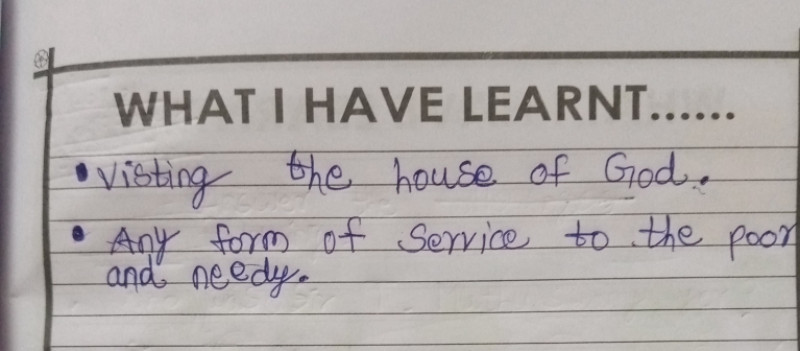 WHAT I HAVE LEARNT......
• Visting the house of God.
• Any form of Service to the poor
and needy.